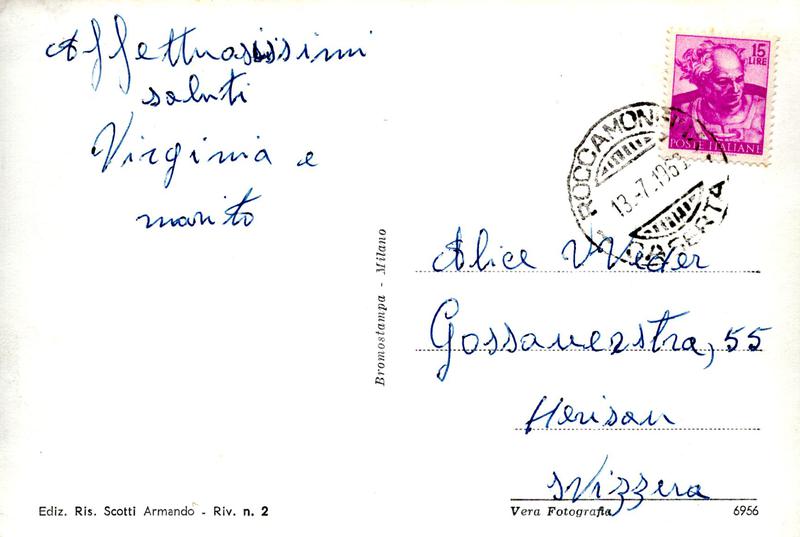 Affettuosissimi
saluti
Virginia e
marito
15
LIRE
POSTE ITALIANE
ROCCAMONFINA
13.-7.1963
CASERTA
Bromostampa - Milano
Alice Weder
Gossauerstra, 55
Herisau
Svizzera
Ediz. Ris. Scotti Armando - Riv. n. 2
Vera Fotografia
6956